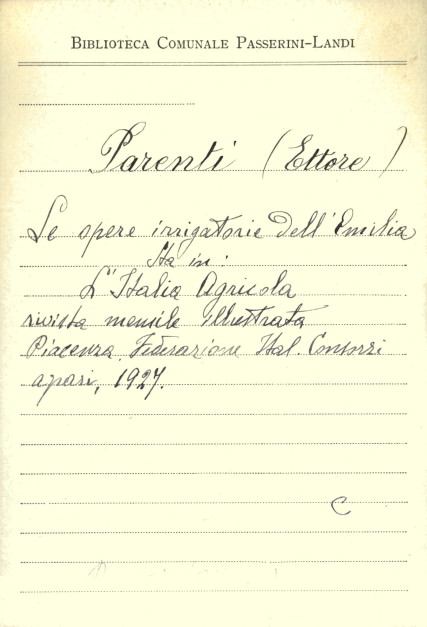 BIBLIOTECA COMUNALE PASSERINI-LANDI
Parenti (Ettore)
Le opere irrigatorie dell'Emilia
Sta in:
L'Italia Agricola
rivista mensile illustrata
Piacenza, Federazione Ital. Consorzi
agrari, 1927.
C